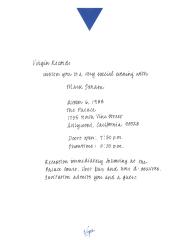 Virgin Records
invites you to a very special evening with
October 6, 1988
The Palace
1735 North Vine Street
Hollywood, California 90028
Doors open: 7:30 p.m.
Showtime: 8:30 p.m.
Reception immediately following at the
Palace Court. Live bar and hors d'oeuvres.
Invitation admits you and a guest.
Virgin